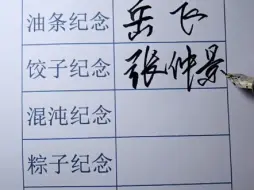 油条纪念 岳飞
饺子纪念 张仲景
混沌纪念
粽子纪念